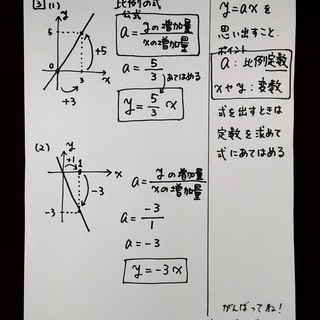 [3] (1)
y
5
+5
0
3
x
+3
比例の式
公式
a = yの増加量 / xの増加量
a = 5/3
あてはめる
y = 5/3 x
(2)
y
+1
1
x
-3
-3
a = yの増加量 / xの増加量
a = -3/1
a = -3
y = -3x
y = axを
思い出すこと.
ポイント
a:比例定数
xやy:変数
式を出すときは
定数を求めて
式にあてはめる
がんばってね!